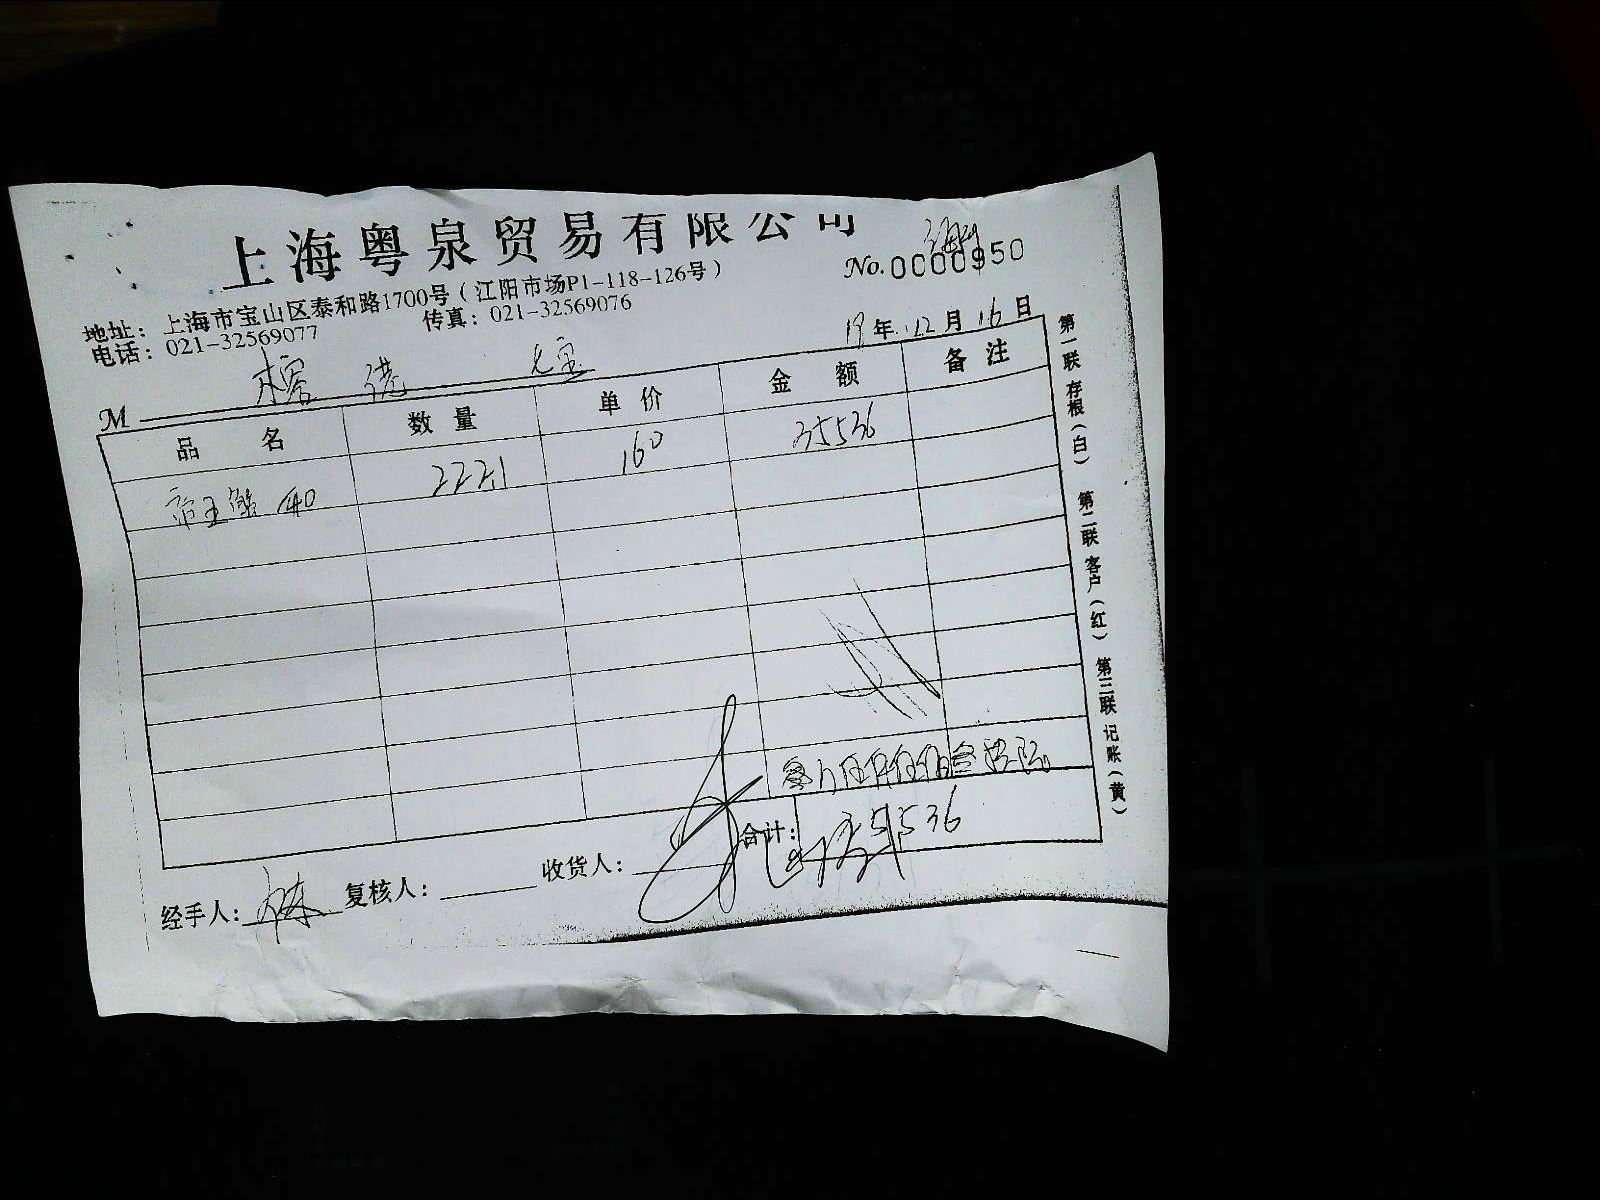 上海粤泉贸易有限公司
No. 0000950
地址：上海市宝山区泰和路1700号（江阳市场P1-118-126号）
电话：021-32569077 传真：021-32569076
19年 12月 16日
M 榕港
品名 数量 单价 金额 备注
帝王蟹 222.1 160 35536
合计： 35536
经手人： 复核人： 收货人：
第一联 存根（白） 第二联 客户（红） 第三联 记账（黄）